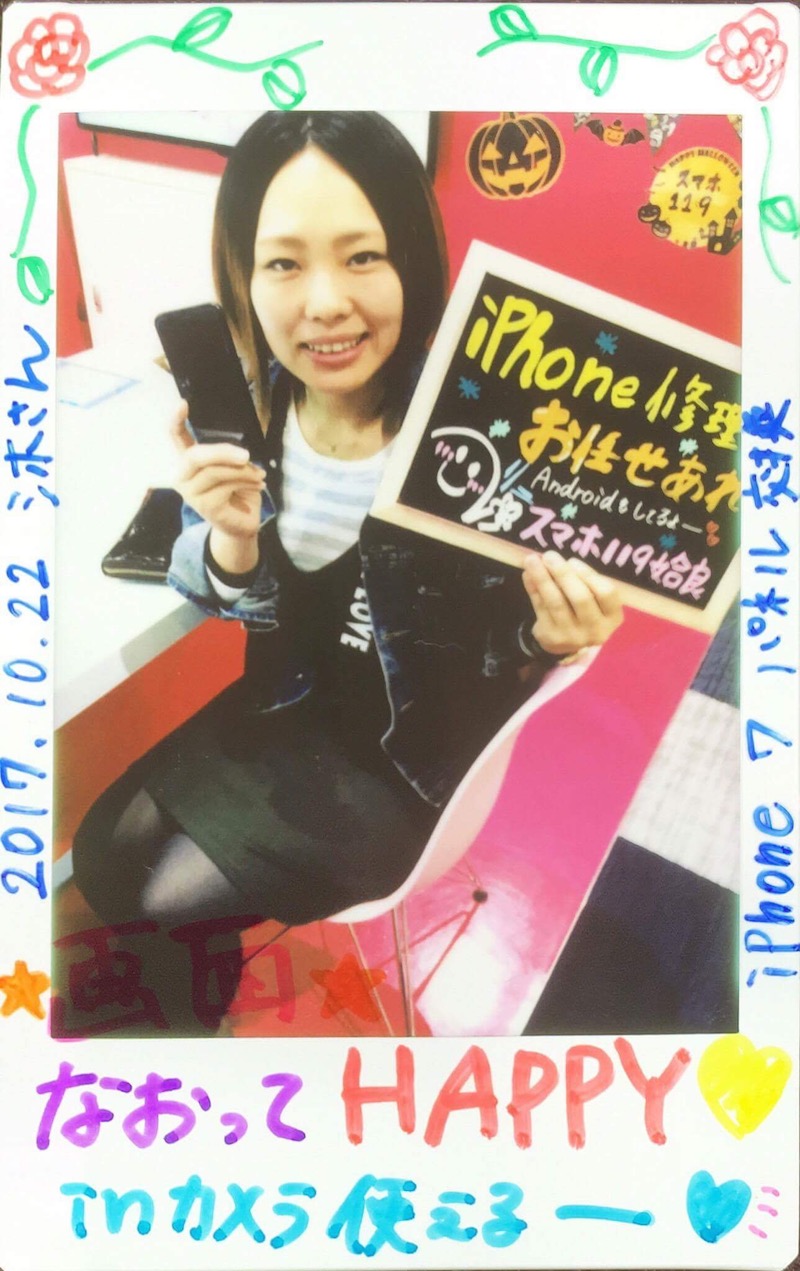 HAPPY HALLOWEEN
スマホ
119
iPhone修理
お任せあれ
Androidもしてるよー
スマホ119姶良
LOVE
2017.10.22
さん
iPhone 7 パネル交換
画面
なおって HAPPY
inカメラ使えるー